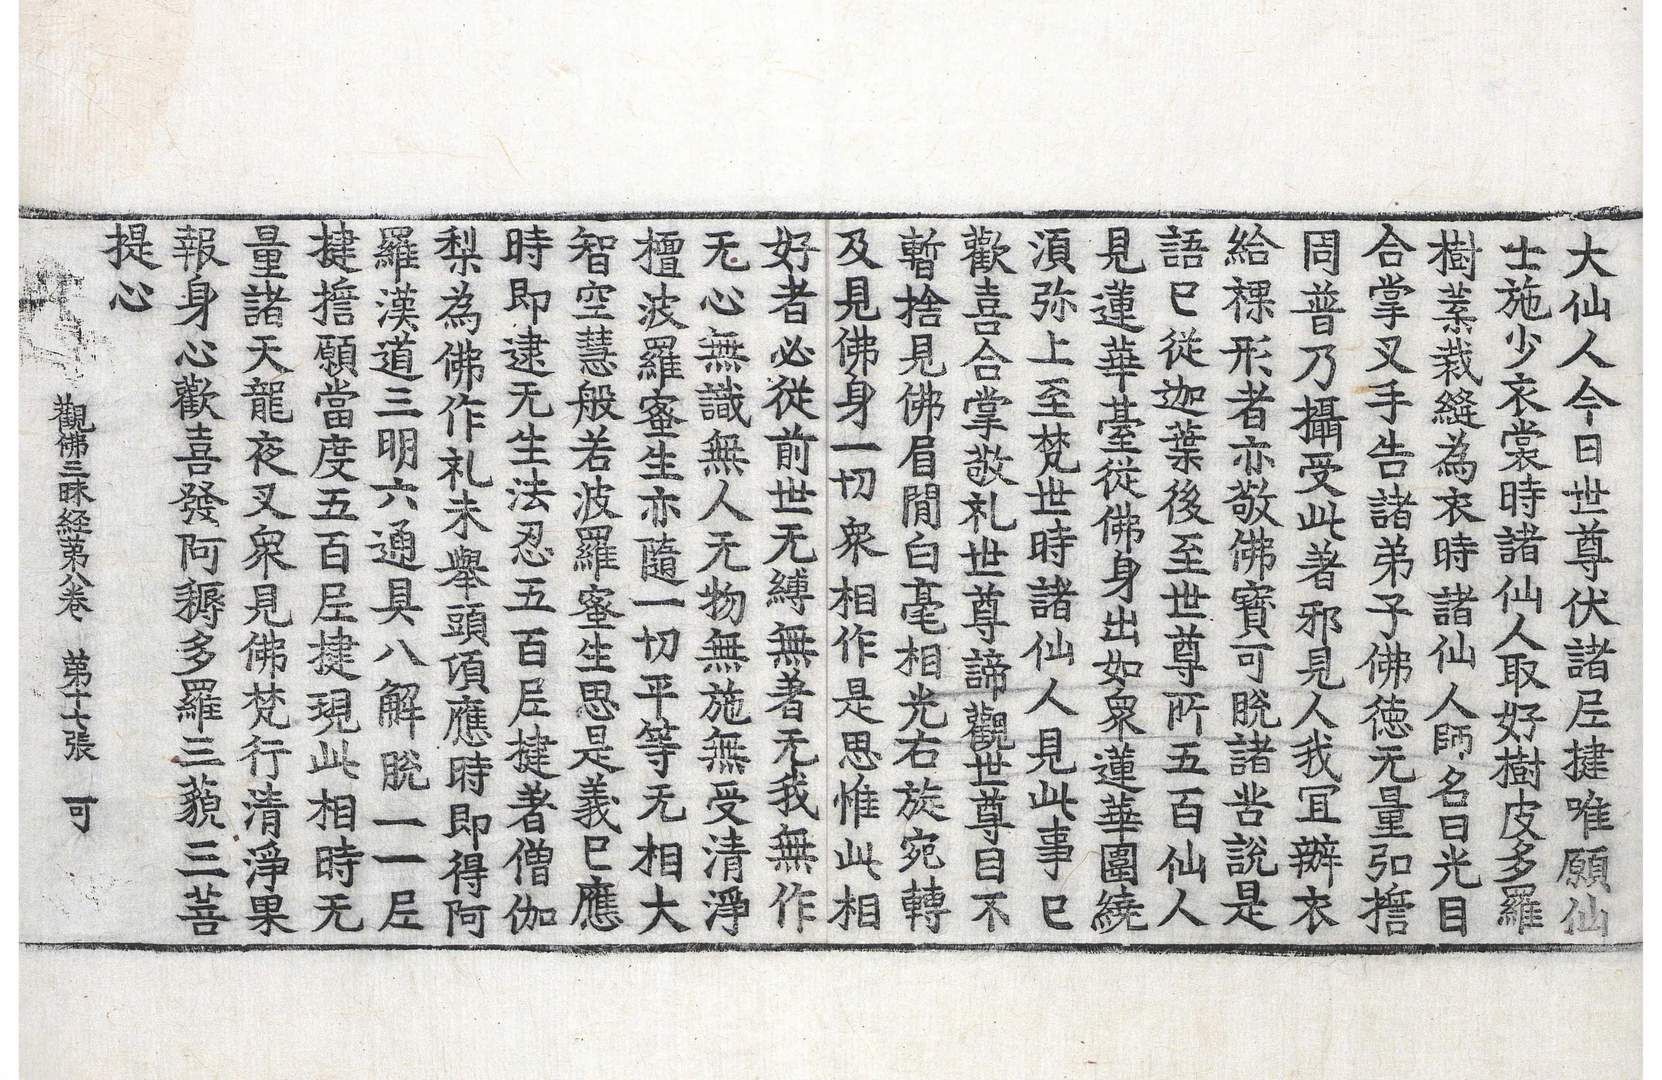 大仙人今日世尊伏諸𡰱揵唯願仙
士施少衣裳時諸仙人取好樹皮多羅
樹葉裁縫為衣時諸仙人師名曰光目
合掌叉手告諸弟子佛徳无量弘擔
周普乃攝受此著邪見人我冝辦衣
給裸形者亦敬佛寶可脫諸苦說是
語已從迦葉後至世尊所五百仙人
見蓮華臺從佛身出如衆蓮華圍繞
湏弥上至梵世時諸仙人見此事已
歡喜合掌敬礼世尊諦觀世尊目不
暫捨見佛眉間白毫相光右旋宛轉
及見佛身一切衆相作是思惟此相
好者必從前世无縛無著无我無作
无心無識無人无物無施無受清淨
檀波羅蜜生亦隨一切平等无相大
智空慧般若波羅蜜生思是義已應
時即逮无生法忍五百𡰱揵著僧伽
梨為佛作礼未舉頭頃應時即得阿
羅漢道三明六通具八解脫一一𡰱
揵擔願當度五百𡰱揵現此相時无
量諸天龍夜叉衆見佛梵行清淨果
報身心歡喜發阿耨多羅三藐三菩
提心
觀佛三昧経苐八卷 苐十七張 可